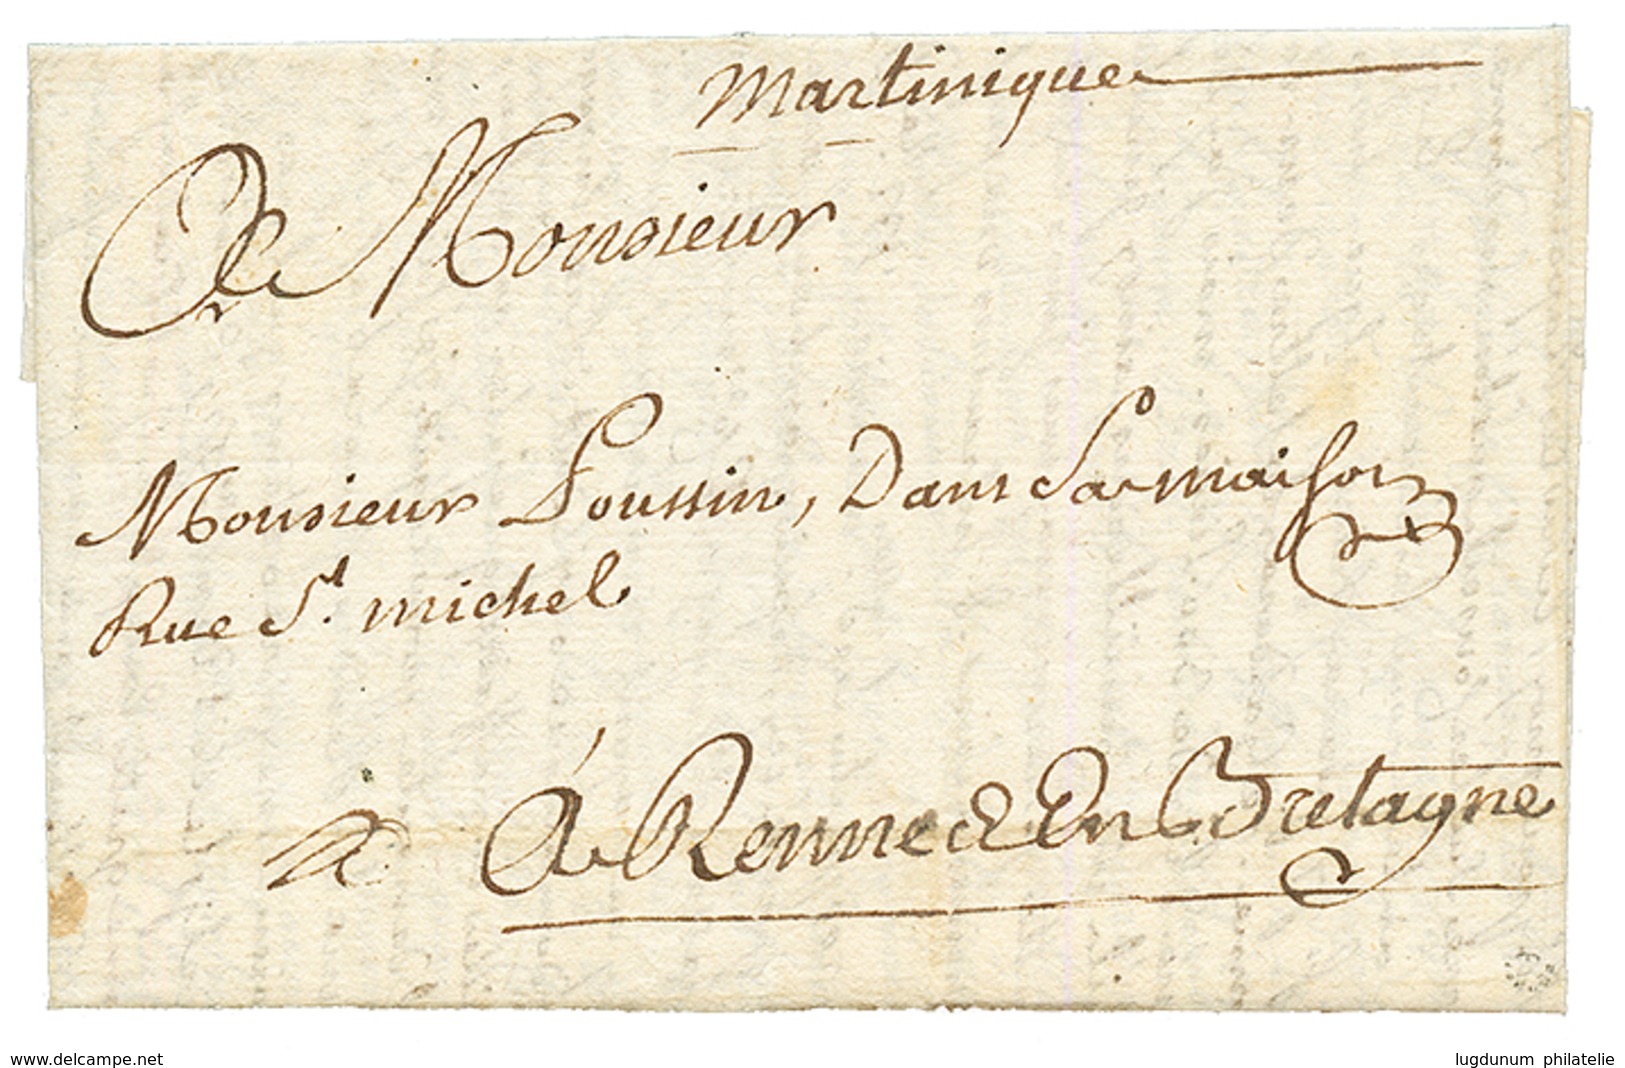 Martinique
A Monsieur
Monsieur Poussin, Dans Sa maison
Rue St. michel
A Rennes En Bretagne
www.delcampe.net
lugdunum philatelie